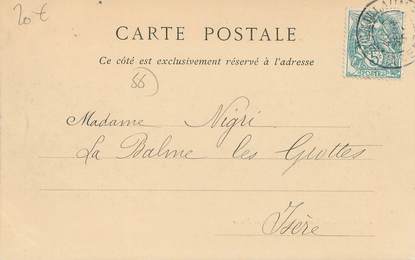 20 €
CARTE POSTALE
Ce côté est exclusivement réservé à l'adresse
88
Madame Nigri
La Balme les Grottes
Isère
5
POSTES